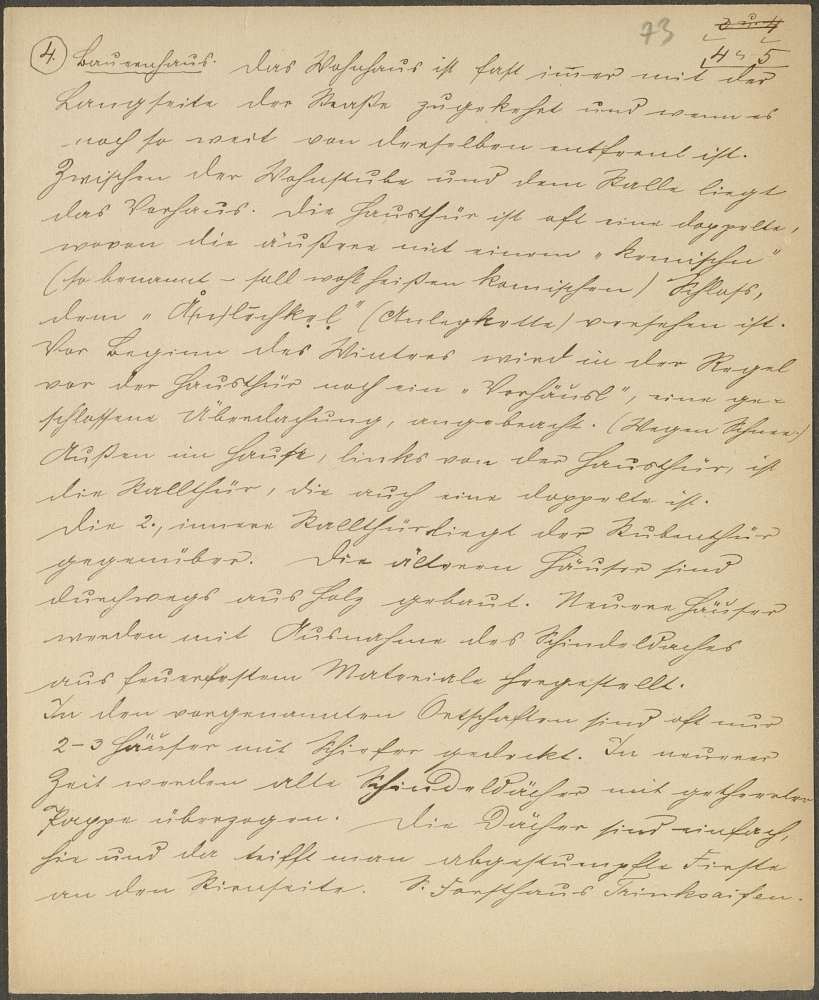 73
3 u. 4
4 u. 5
4. Bauernhaus. Das Wohnhaus ist fast im̄er mit der
Langseite der Straße zugekehrt und wenn es
noch so weit von derselben entfernt ist.
Zwischen der Wohnstube und dem Stalle liegt
das Vorhaus. Die Hausthür ist oft eine doppelte,
wovon die äußere mit einem „komischn"
(so benannt – soll wohl heißen komischen) Schloss,
dem „ (Anlegkette) versehen ist.
Vor Beginn des Winters wird in der Regel
vor der Hausthür noch ein „Vorhäusl", eine ge-
schlossene Überdachung, angebracht. (Wegen Schnee.)
Außen im Hause, links von der Hausthür, ist
die Stallthür, die auch eine doppelte ist.
Die 2., innere Stallthür liegt der Stubenthür
gegenüber. Die älteren Häuser sind
durchwegs aus Holz gebaut. Neuere Häuser
werden mit Ausnahme des Schindeldaches
aus feuerfestem Materiale hergestellt.
In den vorgenannten Ortschaften sind oft nur
2-3 Häuser mit Schiefer gedeckt. In neuerer
Zeit werden alte Schindeldächer mit getheerter
Pappe überzogen. Die Dächer sind einfach,
hie und da trifft man abgestumpfte Firste
an den Stirnseite. S. Forsthaus Trinksaifen.